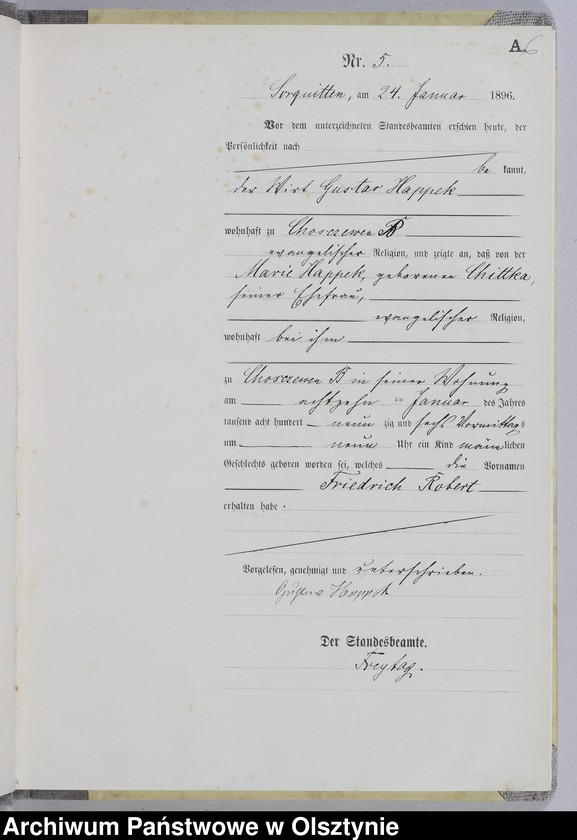 A.
6
Nr. 5.
Sorquitten, am 24. Januar 1896.
Vor dem unterzeichneten Standesbeamten erschien heute, der
Persönlichkeit nach
be kannt,
der Wirt Gustav Happek
wohnhaft zu Choszewen B
evangelischer Religion, und zeigte an, daß von der
Marie Happek, geborenen Chittka,
seiner Ehefrau,
evangelischer Religion,
wohnhaft bei ihm
zu Choszewen B in seiner Wohnung
am achtzehn ten Januar des Jahres
tausend acht hundert neun zig und sechs Vormittags
um neun Uhr ein Kind männlichen
Geschlechts geboren worden sei, welches die Vornamen
Friedrich Robert
erhalten habe.
Vorgelesen, genehmigt und unterschrieben.
Gustav Happek
Der Standesbeamte.
Freytag.
Archiwum Państwowe w Olsztynie